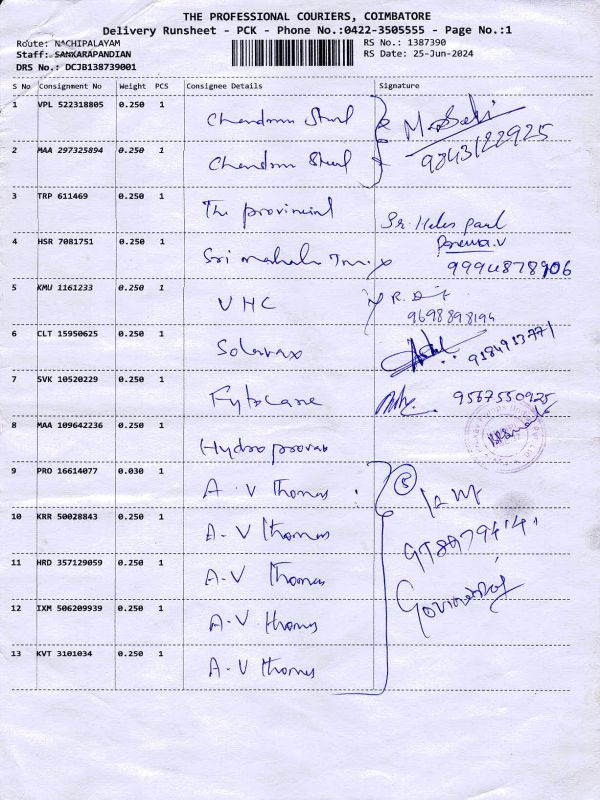 THE PROFESSIONAL COURIERS, COIMBATORE
Delivery Runsheet - PCK - Phone No.:0422-3505555 - Page No.:1
Route: NACHIPALAYAM
RS No.: 1387390
Staff: SANKARAPANDIAN
RS Date: 25-Jun-2024
DRS No.: DCJB138739001
S No Consignment No Weight PCS Consignee Details Signature
1 VPL 522318805 0.250 1
9843122925
2 MAA 297325894 0.250 1
3 TRP 611469 0.250 1 The provincial
4 HSR 7081751 0.250 1 Sri
9994878906
5 KMU 1161233 0.250 1 VHC
9698898194
6 CLT 15950625 0.250 1
7 SVK 10520229 0.250 1 9567550925
8 MAA 109642236 0.250 1
9 PRO 16614077 0.030 1 A.V Thomas 5
10 KRR 50028843 0.250 1 A.V Thomas
11 HRD 357129059 0.250 1 A.V Thomas
12 IXM 506209939 0.250 1 A.V Thomas
Govindraj
13 KVT 3101034 0.250 1 A.V Thomas